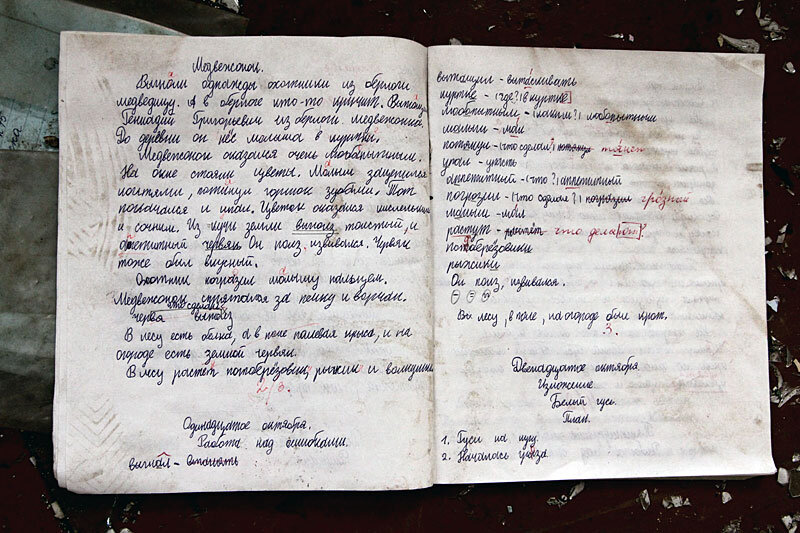 Медвежонок.
Выгнали однажды охотники из берлоги
медведицу. А в берлоге кто-то пищит.
Геннадий Григорьевич из берлоги медвежонка.
До деревни он нёс малыша в куртке.
Медвежонок оказался очень
На окне стояли цветы. Малыш зацепился
когтями, потянул горшок зубами. Тот
покачался и упал. Цветок оказался
и сочным. Из кучи земли выполз толстый, и
червяк. Он полз, извивался. Червяк
тоже был вкусный.
Охотник погрозил малышу пальцем.
Медвежонок спрятался за печку и ворчал.
что сделал?
червя выполз
В лесу есть белка, а в поле полевая крыса, и на
огороде есть земной червяк.
В лесу растёт подберёзовик, рыжик и волнушки
2/3.
Одинадцатое октября.
Работа над ошибками.
выгнал - гнать
вытащил - вытаскивать
куртке - (где?) в куртке
любопытным - (каким?) любопытным
малыш - мал
потянул - (что сделал?) потянул тянет
упал - упасть
аппетитный - (что?) аппетитный
погрозил - (что сделал?) погрозил грозный
малыш - мал
растут - растёт что делают?
подберёзовики
рыжики
Он полз, извивался.
В лесу, в поле, на огороде был крот.
3.
Двенадцатое октября.
Изложение.
Белый гусь.
План.
1. Гуси на лугу.
2. Началась гроза.